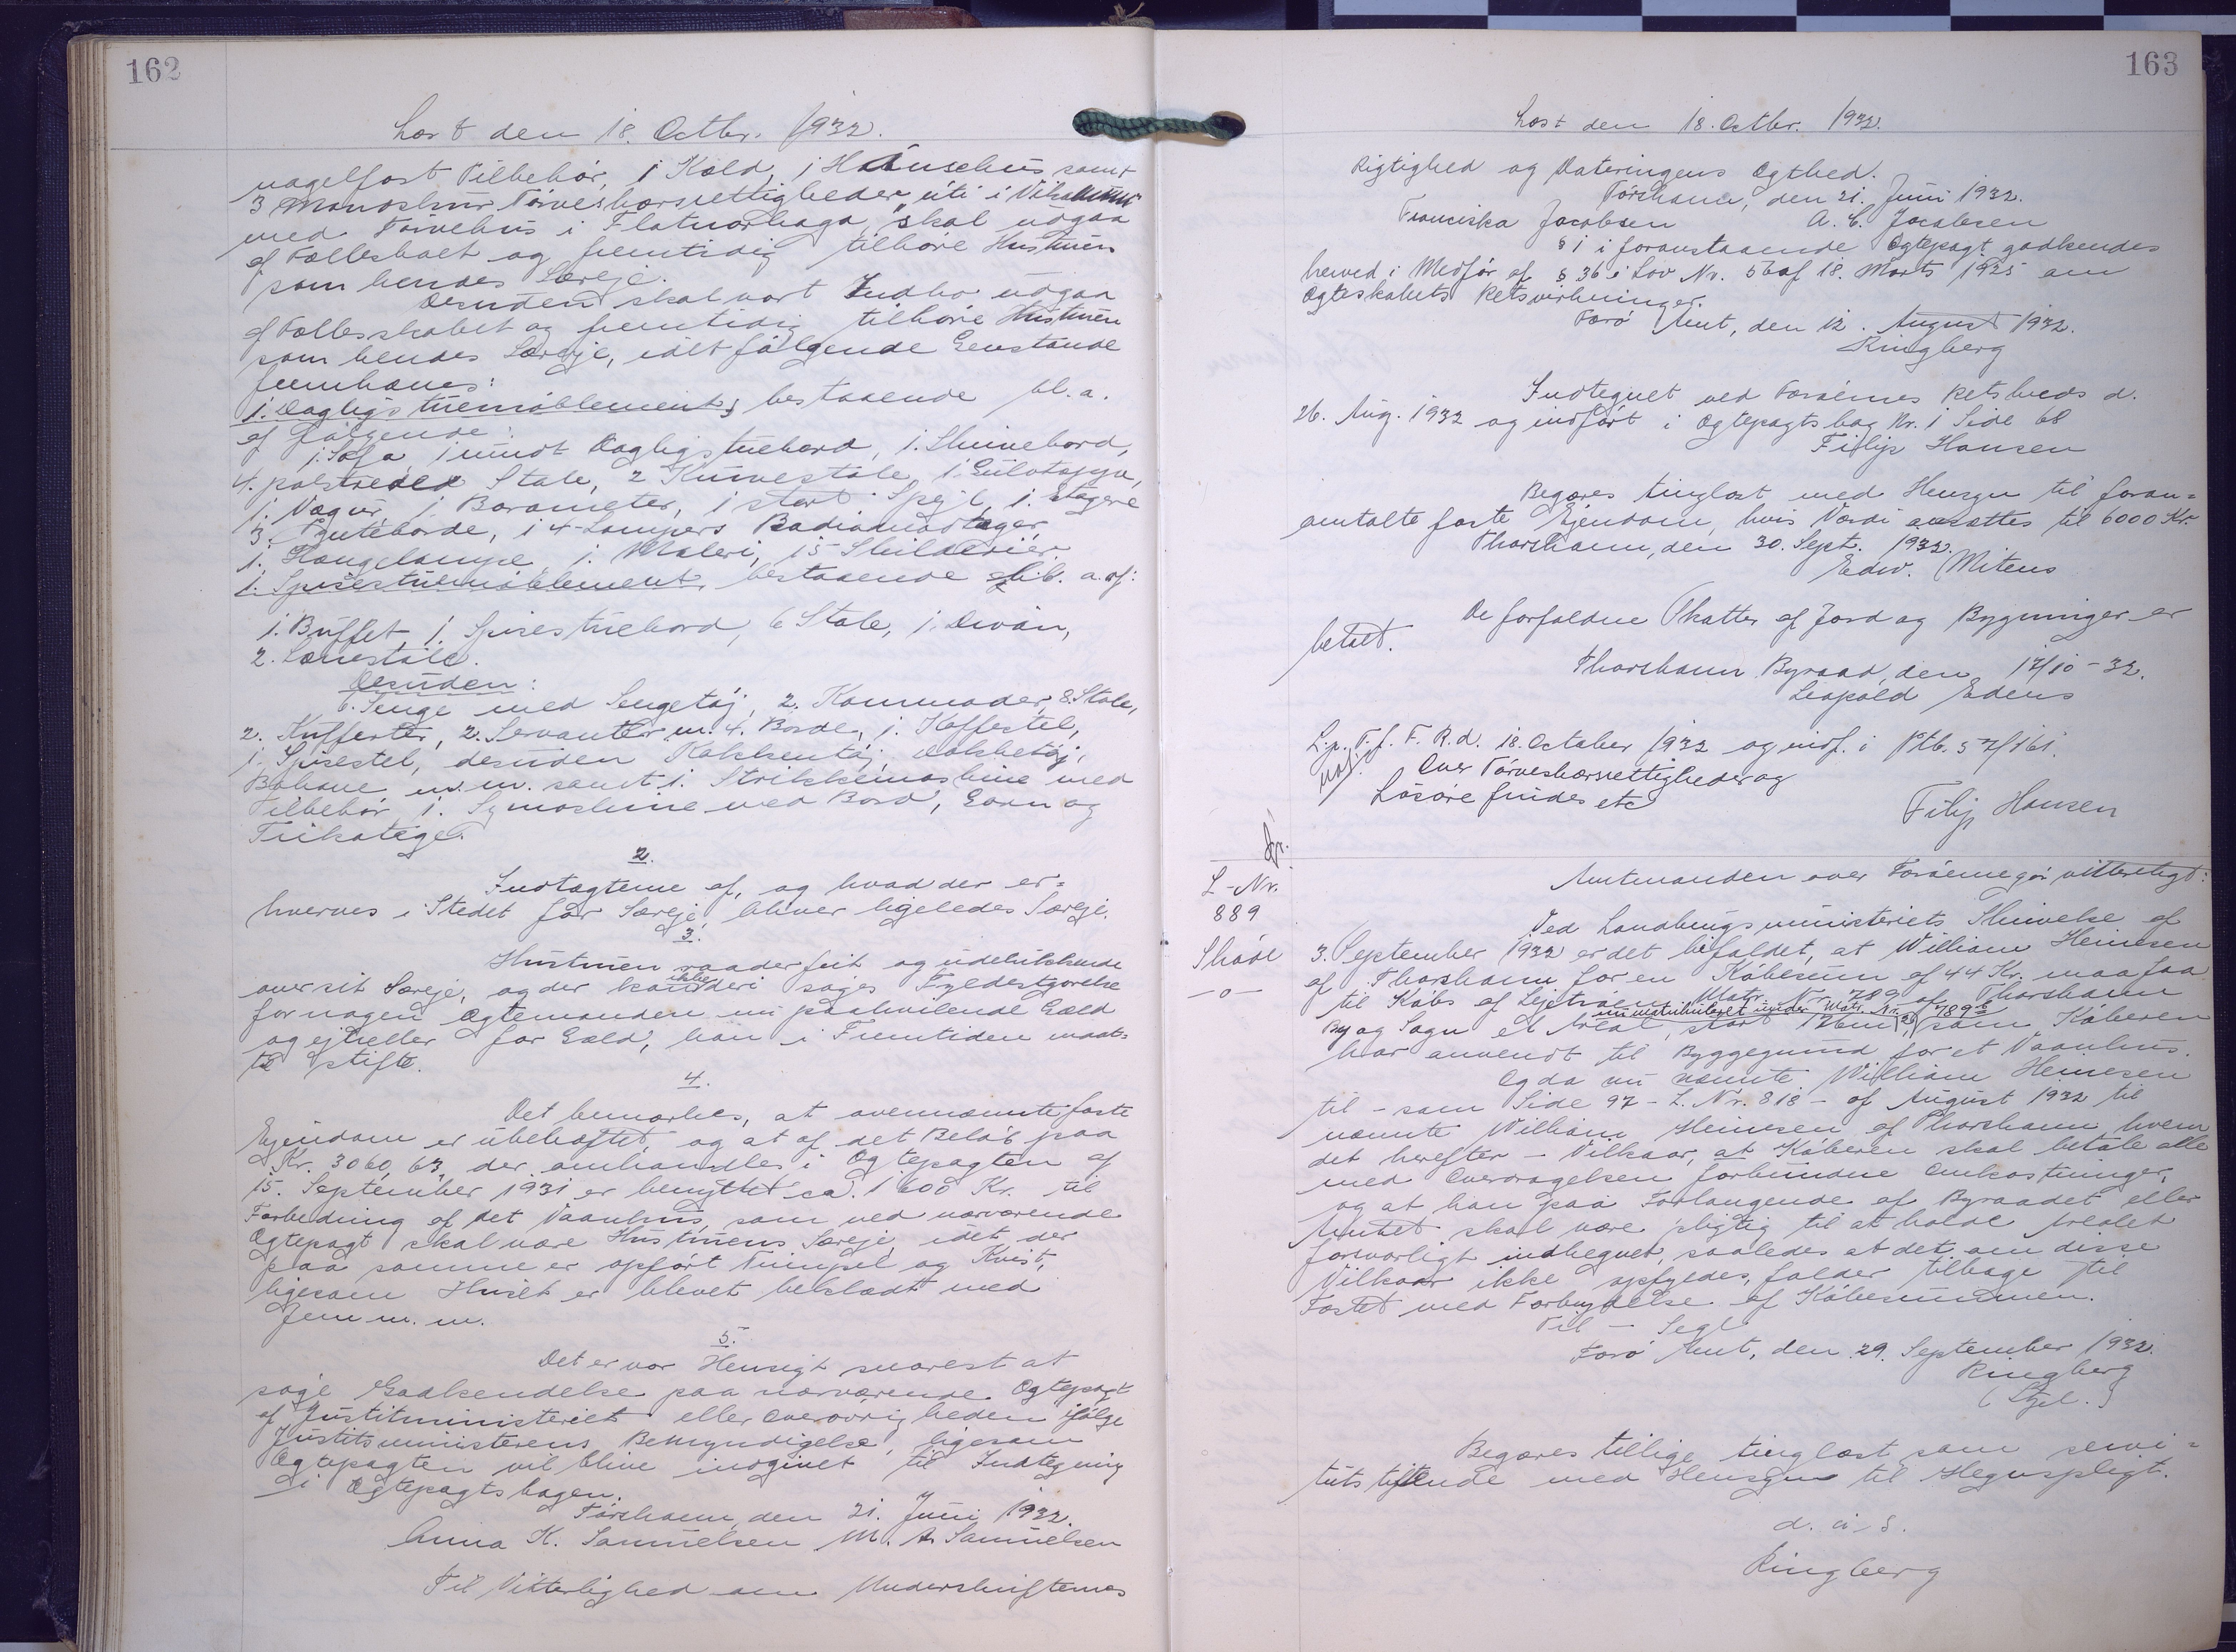 162
Læst den 18. Octbr. 1932.
nagelfast Tilbehör, 1 Kald, 1 Hönsehus samt
3 Tørveskærsrettigheder úti i
med Tørvehus i Flatnarhaga, skal udgaa
af Fællesboet og fremtidig tilhøre Hustruen
som hendes Særeje.
Desuden skal vort Indbo udgaa
af Fællesskabet og fremtidig tilhøre Hustruen
som hendes Særeje, idet følgende Genstande
fremhæves:
1. Dagligstuemøblement, bestaaende bl. a.
af følgende:
1. Sofa, 1 rundt Dagligstuebord, 1. Skrivebord,
4. polstrede Stole, 2 Kurvestole, 1. Gulvtæppe,
1. Vægur, 1. Barometer, 1 stort Spejl, 1. Etagere
3. Pynteborde, 1 4-Lampers Radiomodtager,
1. Hængelampe, 1. Maleri, 15 Skilderier.
1. Spisestuemøblement, bestaaende bl. a. af:
1. Buffet 1. Spisestuebord, 6 Stole, 1. Divan,
2. Lænestole.
Desuden:
6. Senge med Sengetöj, 2. Kommoder, 8. Stole,
2. Kufferter, 2. Servanter m. 4. Borde, 1. Kaffestel,
1. Spisestel, desuden Køkkentöj, Dækketöj,
Bohave m. m. samt 1. Strikkemaskine med
Tilbehör, 1. Symaskine med Bord, Garn og
Trikotage.
2.
Indtægterne af, og hvad der er-
hverves i Stedet for Særeje, bliver ligeledes Særeje.
3.
Hustruen raader frit og udelukkende
over sit Særeje, og der kan ikke deri søges Fyldestgørelse
for nogen Ægtemanden nu paahvilende Gæld
og ejheller for Gæld, han i Fremtiden maat-
te stifte.
4.
Det bemærkes, at ovennævnte faste
Ejendom er ubehæftet, og at af det Beløb paa
Kr. 3060,63, der omhandles i Ægtepagten af
15. September 1931 er benyttet ca. 1600 Kr. til
Forbedring af det Vaanhus, som ved nærværende
Ægtepagt skal være Hustruens Særeje idet der
paa samme er opført og Kvist,
ligesom Huset er blevet beklædt med
Jern m. m.
5.
Det er vor Hensigt snarest at
søge Godkendelse paa nærværende Ægtepagt
af Justitsministeriet eller Overøvrigheden ifølge
Justitsministerens Bemyndigelse, ligesom
Ægtepagten vil blive indgivet til Indtegning
i Ægtepagtsbogen.
Tórshavn, den 21. Juni 1932.
Anna K. Samuelsen M. A. Samuelsen
Til Vitterlighed om Underskrifternes
163
Læst den 18. Octbr. 1932.
Rigtighed og Dateringens Ægthed.
Tórshavn, den 21. Juni 1932.
Franciska Jacobsen A. C. Jacobsen
§ 1 i foranstaaende Ægtepagt godkendes
herved i Medför af § 36 i Lov Nr. 56 af 18. Marts 1925 om
Ægteskabets Retsvirkninger.
Færö Amt, den 12. August 1932.
Ringberg
Indtegnet ved Færøernes Retskreds d.
26. Aug. 1932 og indfört i Ægtepagtsbog Nr. 1 Side 68
Filip Hansen
Begæres tinglæst med Hensyn til foran-
omtalte faste Ejendom, hvis Værdi ansættes til 6000 Kr.
Thorshavn, den 30. Sept. 1932.
Edw. Mitens
De forfaldne Skatter af Jord og Bygninger er
betalt.
Thorshavn Byraad, den 17/10-32.
Liapold Edens
L.p. T. f. F. R. d. 18. October 1932 og indf. i Ptb. 37/161.
Over Tørveskærsrettigheder og
Løsøre findes etc
Filip Hansen
L-Nr.
889
Skøde
-o-
Amtmanden over Færöerne gör vitterligt:
Ved Landbrugsministeriets Skrivelse af
3. September 1932 er det bifaldet, at William Heinesen
af Thorshavn for en Købesum af 44 Kr. maa faa
til Købs af Lejetröen Matr. Nr. 789 af Thorshavn
nu matrikuleret under Matr. Nr. 789
By og Sogn et Areal, stort som Køberen
har anvendt til Byggegrund for et Vaanhus.
Og da nu nævnte William Heinesen
til - som Side 97 - L. Nr. 818 - af August 1932 til
nævnte William Heinesen af Thorshavn hvem
det herefter - Vilkaar, at Køberen skal betale alle
med Overdragelsen forbundne Omkostninger,
og at han paa Forlangende af Byraadet eller
Amtet skal være pligtig til at holde Arealet
forsvarligt indhegnet, saaledes at det, om disse
Vilkaar ikke opfyldes, falder tilbage til
Fæstet med Fortabelse af Købesummen.
Til - Segl
Færö Amt, den 29. September 1932.
Ringberg
Begæres tillige tinglæst som servi-
tutstiftende med Hensyn til Hegnspligt.
d. u. s.
Ringberg